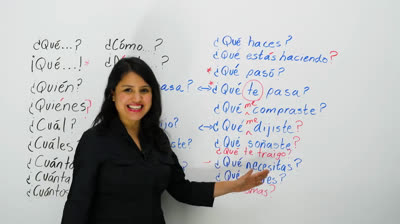 ¿Qué...?
¡Qué...!*
¿Quién?
¿Quiénes?
¿Cuál?
¿Cuáles
¿Cuánto
¿Cuánta
¿Cuántos
¿Cómo...?
pasa?
¿Qué haces?
¿Qué estás haciendo?
* ¿Qué pasó?
* ¿Qué te pasa?
¿Qué me compraste?
¿Qué me dijiste?
¿Qué soñaste?
¿Qué te traigo?
¿Qué necesitas?
¿Qué